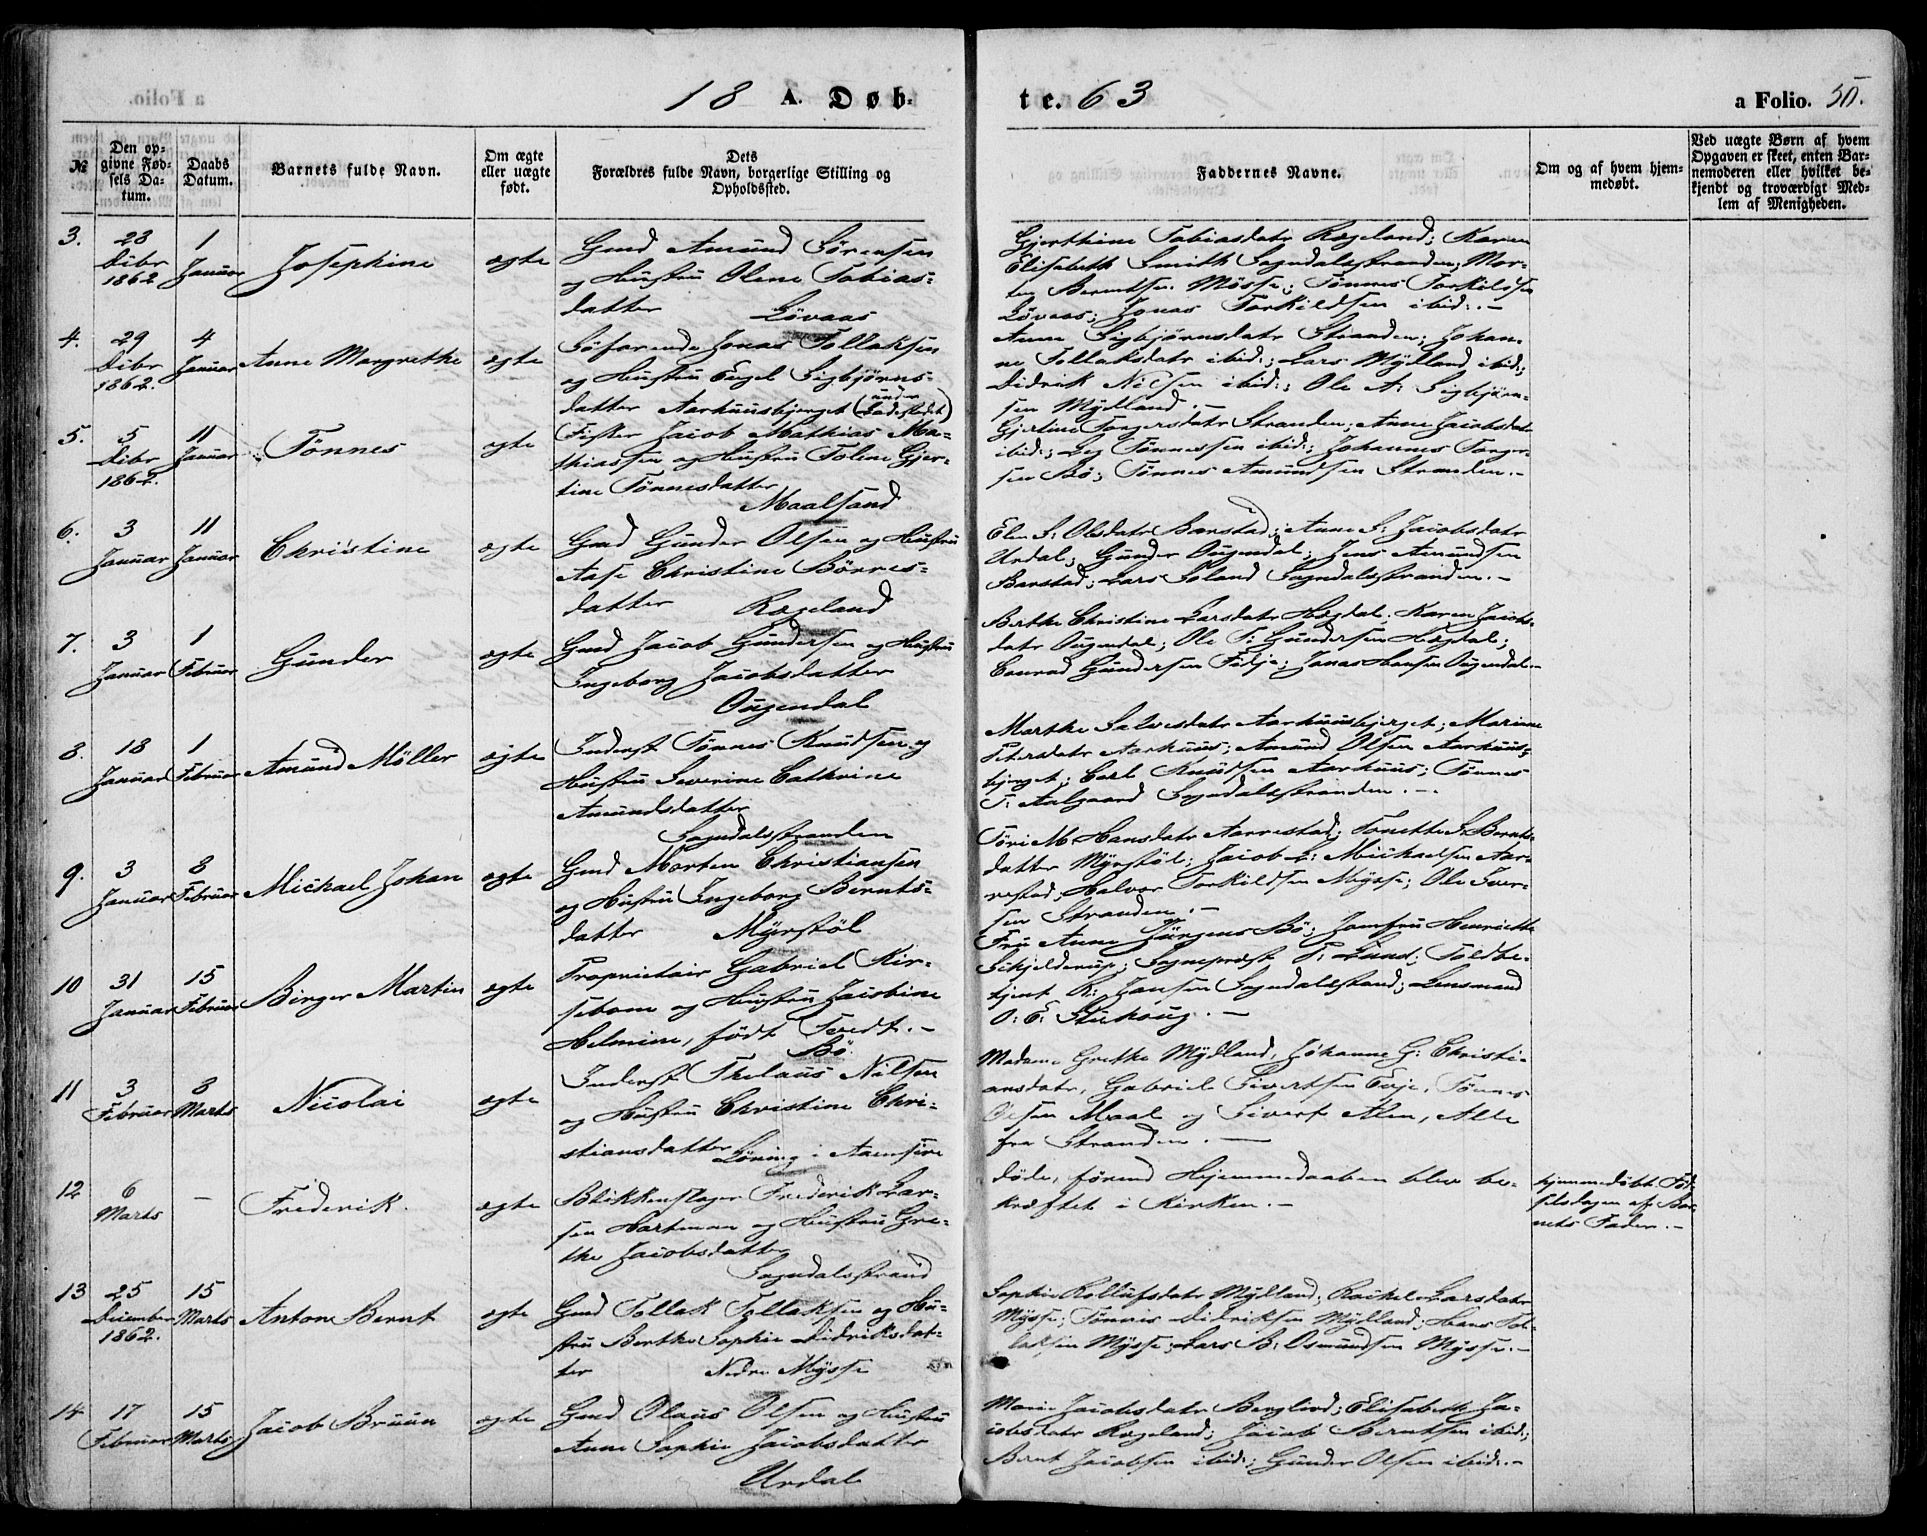 18 A. Døb-
te. 63
a Folio. 50.
№
Den op-
givne Fød-
sels Da-
tum.
Daabs
Datum.
Barnets fulde Navn.
Om ægte
eller uægte
født.
Dets
Forældres fulde Navn, borgerlige Stilling og
Opholdssted.
Faddernes Navne.
Om og af hvem hjem-
medøbt.
Ved uægte Børn af hvem
Opgaven er skeet, enten Bar-
nemoderen eller hvilket be-
kjendt og troværdigt Med-
lem af Menigheden.
3.
23
Dcbr
1862
1
Januar
Josephine
ægte
Gmd Amund Sørensen
og Hustru Olene Tobias-
datter Løvaas
Gjerthine Tobiasdatr Rægeland; Karen
Elisabeth Smith Sogndalsstranden; Mor-
ten Berntsen Møsse; Tønnes Torkildsen
Løvaas; Jonas Torkildsen ibid:.-
4.
29
Dcbr
1862.
4
Januar
Anne Margrethe
ægte
Søfarende Jonas Tollaksen
og Hustru Engel Sigbjørns-
datter Aarhuusbjerget (under
Ladestedet)
Anne Sigbjørnsdatr Stranden; Johan-
ne Tollaksdatr ibid:; Lars Mydland ibid;
Didrik Nilsen ibid:; Ole A: Sigbjørn-
sen Mydland.-
5.
5
Dcbr
1862.
11
Januar
Tönnes
ægte
Fisker Jacob Mathias Ma-
thiassen og Hustru Tolene Gjer-
tine Tønnesdatter
Maalsand
Gjertine Torgersdatr Stranden; Anne Jacobsdatr
ibid:; Tønnessen ibid:; Johannes Torger-
sen Bö; Tønnes Amundsen Stranden.-
6.
3
Januar
11
Januar
Christine
ægte
Gmd Gunder Olsen og Hustru
Aase Christine Børres-
datter Rægeland
Elen S: Olsdatr Barstad; Anne S: Jacobsdatr
Urdal; Gunder Ougendal; Jens Amundsen
Barstad; Lars Soland Sogndalsstranden.-
7.
3
Januar
1
Februar
Gunder
ægte
Gmd Jacob Gundersen og Hustru
Ingeborg Jacobsdatter
Ougendal
Berthe Christine Larsdatr Hægdal; Karen Jacobs-
datr Ougendal; Ole T: Gundersen Hægdal;
Conrad Gundersen Fidje; Jonas Hansen Ougendal.-
8.
18
Januar
1
Februar
Amund Möller
ægte
Inderst Tønnes Knudsen og
Hustru Severine Cathrine
Amundsdatter
Sogndalsstranden
Marthe Salvesdatr Aarhuusbjerget; Marinne
Petersdatr Aarhuus; Amund Olsen Aarhuus-
bjerget; Carl Knudsen Aarhuus; Tønnes
T: Aalgaard Sogndalsstranden.-
9.
3
Januar
8
Februar
Michael Johan
ægte
Gmd Morten Christiansen
og Hustru Ingeborg Bernts-
datter Myrstöl
Töri M. Hansdatr Aarrestad; Tonette S Bernts-
datter Myrstöl; Jacob L: Michaelsen Aar-
restad; Halvor Torkildsen Mysse; Ole Iver-
sen Stranden.-
10
31
Januar
15
Februar
Birger Martin
ægte
Proprietair Gabriel Kir-
sebom og Hustru Jacobine
Helmine, født Tvedt.-
Bö.
Fru Anne Jürgens Bö; Jomfru Henriette
Schjelderup; Sognepræst P: Lund; Toldbe-
tjent R: Jansen Sogndalsstrand; Lensmand
O: E: Stuhoug.-
11
3
Februar
8
Marts
Nicolai
ægte
Inderst Thelaus Nilsen
og Hustru Christine Chri-
stiansdatter Löning i Aaensire
Madame Grethe Mydland, Johanne G: Christi-
ansdatr, Gabriel Sivertsen Evje, Tønnes
Olsen Maal og Sivert Aten, Alle
fra Stranden.-
12
6
Marts
-
Frederik.
ægte
Blikkenslager Frederik Lar-
sen Hartman og Hustru Gre-
the Jacobsdatter
Sogndalsstrand
døde, førend Hjemmedaaben blev be-
kræftet i Kirken.-
hjemmedöbt Föd-
selsdagen af Bar-
nets Fader.-
13
25
December
1862.
15
Marts
Anton Bernt
ægte
Gmd Tollak Tollaksen og Hu-
stru Berthe Sophie Didriksdat-
ter Nedre Mysse
Sophie Rollufsdatr Mydland, Rachel Larsdatr
Mysse; Tønnes Didriksen Mydland; Hans Tol-
laksen Mysse; Lars B: Osmundsen Mysse.-
14
17
Februar
15
Marts
Jacob Bruun
ægte
Gmd Olaus Olsen og Hustru
Anne Sophie Jacobsdatter
Urdal
Marie Jacobsdatr Berglund; Elisabeth Ja-
cobsdatr Rægeland; Jacob Berntsen ibid;
Bernt Jacobsen ibid:; Gunder Olsen ibid:.-